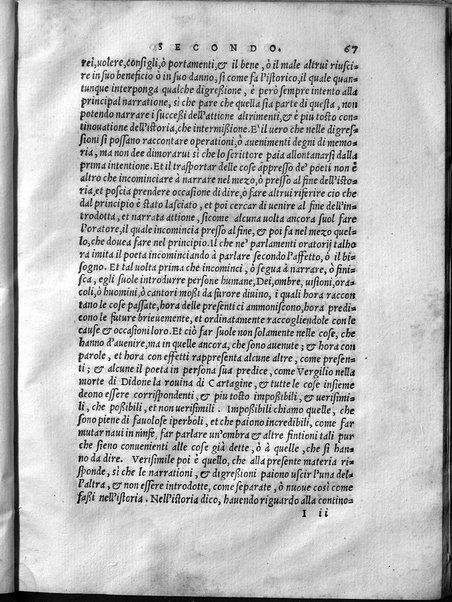 SECONDO. 67
rei, uolere, consigli, ò portamenti, & il bene, ò il male altrui riusci-
re in suo beneficio ò in suo danno, sì come fa l'istorico, il quale quan-
tunque interponga qualche digressione, è però sempre intento alla
principal narratione, sì che pare che quella sia parte di questa, non
potendo narrare i successi dell'attione altrimenti, & è piu tosto con
tinouatione dell'istoria, che intermissione. E' il uero che nelle digres-
sioni si possano raccontare operationi, ò auenimenti degni di memo-
ria, ma non dee dimorarui sì che lo scrittore paia allontanarsi dalla
prima intentione. Et il trasportar delle cose appresso de' poeti non è
altro che incominciare à narrare nel mezo, ò presso al fine dell'isto-
ria, et poscia prendere occasione di dire, ò fare altrui riferire ciò che
dal principio è stato lasciato, et poi cercar di uenire al fine dell'in-
trodotta, et narrata attione, sicome alcuna uolta ancora suol fare
l'oratore, il quale incomincia presso al fine, & poi fa nel mezo quel-
lo, che douea fare nel principio. Al che ne' parlamenti oratorij talho
ra imita il poeta incominciando à parlare secondo l'affetto, ò il bi-
sogno. Et tal uolta prima che incominci, ò segua à narrare, ò fini-
sca, egli suole introdurre persone humane, Dei, ombre, uisioni, ora-
coli, ò huomini, ò cantori mossi da furore diuino, i quali hora raccon
tano le cose passate, hora delle presenti ci ammoniscono, hora predi
cono le future brieuemente, et ordinatamente raccogliendole con le
cause & occasioni loro. Et ciò far suole non solamente nelle cose, che
hanno d'auenire, ma in quelle ancora, che sono auenute; & hora con
parole, et hora con effetti rappresenta alcune altre, come presen-
ti; & alcune il poeta in persona sua predice, come Vergilio nella
morte di Didone la rouina di Cartagine, & tutte le cose insieme
deono essere corrispondenti, & piu tosto impossibili, & uerisimi-
li, che possibili, et non uerisimili. Impossibili chiamo quelle, che
sono piene di fauolose iperboli, et che paiono incredibili, come far
mutar naui in ninfe, far parlare un'ombra & altre fintioni tali pur
che sieno conuenienti alle cose già dette, ò à quelle, che si han-
no à dire. Verisimile poi è quello, che alla presente materia ri-
sponde, sì che le narrationi, & digressioni paiono uscir l'una del-
l'altra, & non essere introdotte, come separate, ò nuoue così come
fassi nell'istoria. Nell'istoria dico, hauendo riguardo alla contino-
I ii